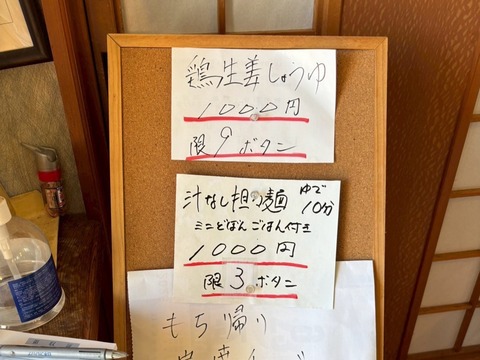 鶏生姜しょうゆ
1000円
限9ボタン
汁なし担々麺 ゆで10分
ミニどぼんごはん付き
1000円
限3ボタン
もち帰り